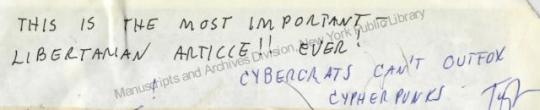 THIS IS THE MOST IMPORTANT -
LIBERTARIAN ARTICLE!! EVER!
Manuscripts and Archives Division, New York Public Library
CYBERCRATS CAN'T OUTFOX
CYPHERPUNKS.